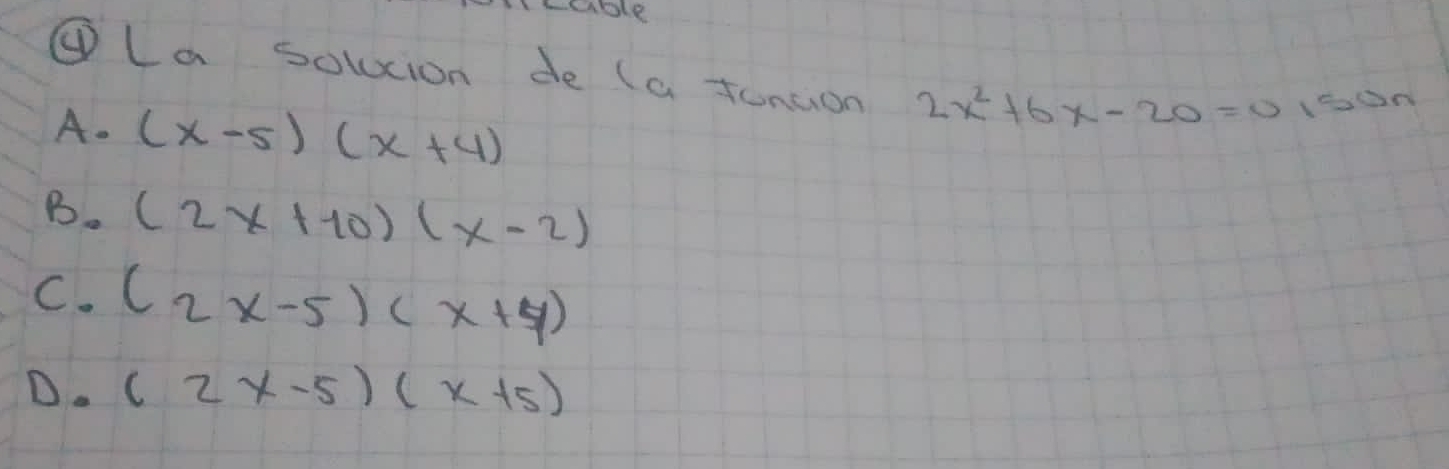 ④ La solucion de la funcion 2x²+6x-20=0, son
A. (x-5) (x+4)
B. (2x+10) (x-2)
C. (2x-5) (x+4)
D. (2x-5) (x+5)